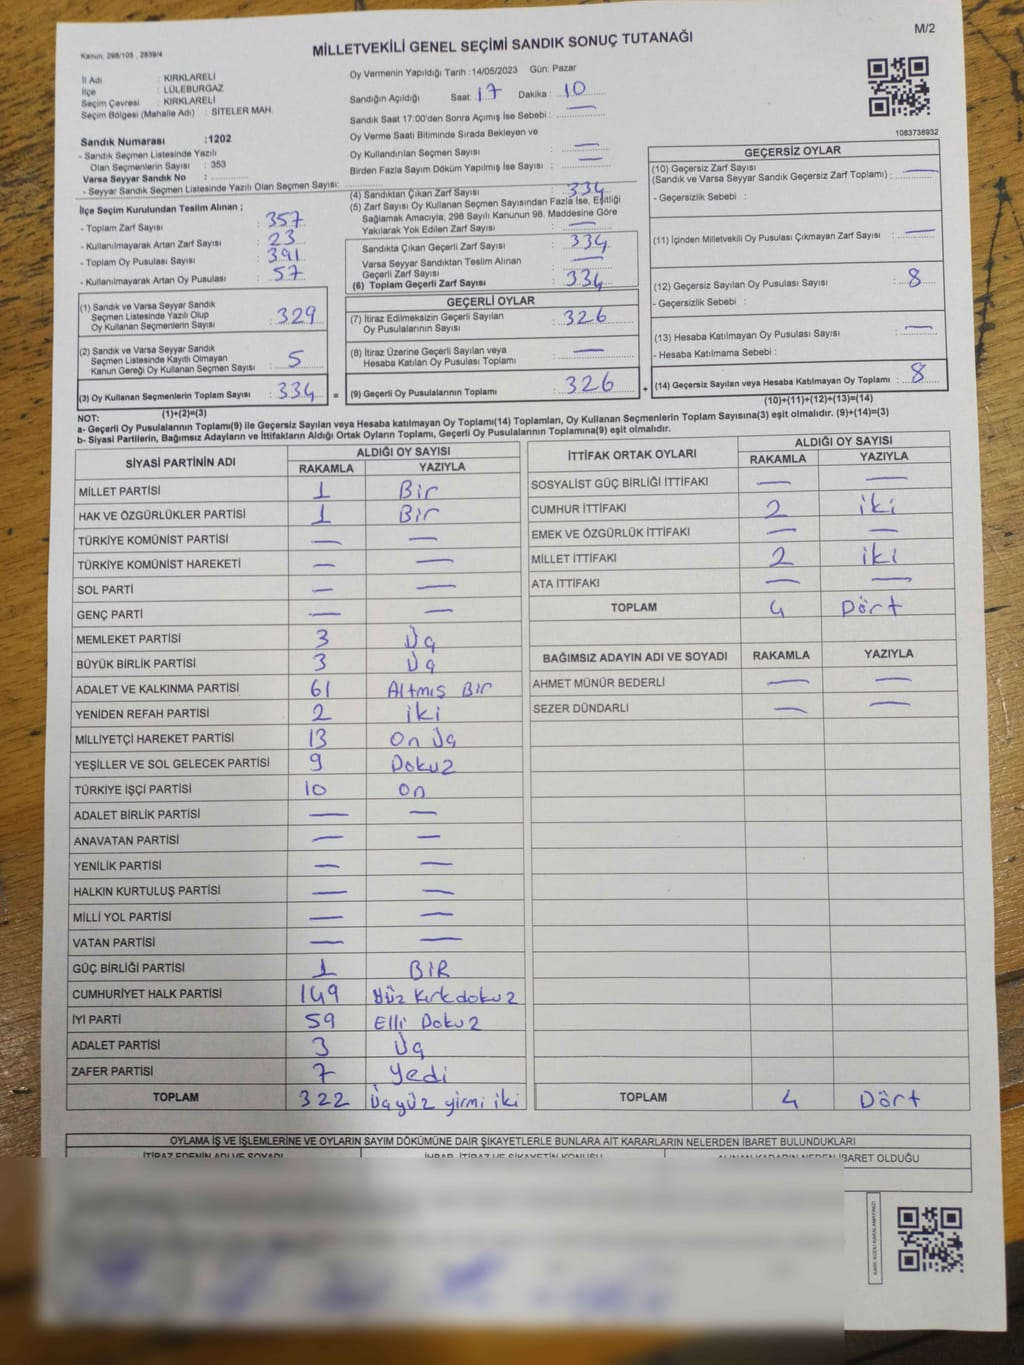 Kanun: 298/105 , 2839/4
M/2
MİLLETVEKİLİ GENEL SEÇİMİ SANDIK SONUÇ TUTANAĞI
İl Adı : KIRKLARELİ
İlçe : LÜLEBURGAZ
Seçim Çevresi : KIRKLARELİ
Seçim Bölgesi (Mahalle Adı) : SİTELER MAH.
Sandık Numarası :1202
- Sandık Seçmen Listesinde Yazılı
Olan Seçmenlerin Sayısı : 353
Varsa Seyyar Sandık No :
- Seyyar Sandık Seçmen Listesinde Yazılı Olan Seçmen Sayısı:
Oy Vermenin Yapıldığı Tarih :14/05/2023 Gün: Pazar
Sandığın Açıldığı Saat: 17 Dakika : 10
Sandık Saat 17:00'den Sonra Açımış İse Sebebi : —
Oy Verme Saati Bitiminde Sırada Bekleyen ve
Oy Kullandırılan Seçmen Sayısı : —
Birden Fazla Sayım Döküm Yapılmış İse Sayısı : —
1083738932
İlçe Seçim Kurulundan Teslim Alınan ;
- Toplam Zarf Sayısı : 357
- Kullanılmayarak Artan Zarf Sayısı : 23
- Toplam Oy Pusulası Sayısı : 391
- Kullanılmayarak Artan Oy Pusulası : 57
(1) Sandık ve Varsa Seyyar Sandık
Seçmen Listesinde Yazılı Olup
Oy Kullanan Seçmenlerin Sayısı : 329
(2) Sandık ve Varsa Seyyar Sandık
Seçmen Listesinde Kayıtlı Olmayan
Kanun Gereği Oy Kullanan Seçmen Sayısı : 5
(3) Oy Kullanan Seçmenlerin Toplam Sayısı : 334 =
(1)+(2)=(3)
(4) Sandıktan Çıkan Zarf Sayısı : 334
(5) Zarf Sayısı Oy Kullanan Seçmen Sayısından Fazla İse, Eşitliği
Sağlamak Amacıyla; 298 Sayılı Kanunun 98. Maddesine Göre
Yakılarak Yok Edilen Zarf Sayısı : —
Sandıkta Çıkan Geçerli Zarf Sayısı : 334
Varsa Seyyar Sandıktan Teslim Alınan
Geçerli Zarf Sayısı : —
(6) Toplam Geçerli Zarf Sayısı : 334
GEÇERLİ OYLAR
(7) İtiraz Edilmeksizin Geçerli Sayılan
Oy Pusulalarının Sayısı : 326
(8) İtiraz Üzerine Geçerli Sayılan veya
Hesaba Katılan Oy Pusulası Toplamı : —
(9) Geçerli Oy Pusulalarının Toplamı : 326 +
GEÇERSİZ OYLAR
(10) Geçersiz Zarf Sayısı
(Sandık ve Varsa Seyyar Sandık Geçersiz Zarf Toplamı) : —
- Geçersizlik Sebebi :
(11) İçinden Milletvekili Oy Pusulası Çıkmayan Zarf Sayısı : —
(12) Geçersiz Sayılan Oy Pusulası Sayısı : 8
- Geçersizlik Sebebi :
(13) Hesaba Katılmayan Oy Pusulası Sayısı : —
- Hesaba Katılmama Sebebi :
(14) Geçersiz Sayılan veya Hesaba Katılmayan Oy Toplamı : 8
(10)+(11)+(12)+(13)=(14)
NOT:
a- Geçerli Oy Pusulalarının Toplamı(9) ile Geçersiz Sayılan veya Hesaba katılmayan Oy Toplamı(14) Toplamları, Oy Kullanan Seçmenlerin Toplam Sayısına(3) eşit olmalıdır. (9)+(14)=(3)
b- Siyasi Partilerin, Bağımsız Adayların ve İttifakların Aldığı Ortak Oyların Toplamı, Geçerli Oy Pusulalarının Toplamına(9) eşit olmalıdır.
SİYASİ PARTİNİN ADI ALDIĞI OY SAYISI
RAKAMLA YAZIYLA
MİLLET PARTİSİ 1 Bir
HAK VE ÖZGÜRLÜKLER PARTİSİ 1 Bir
TÜRKİYE KOMÜNİST PARTİSİ — —
TÜRKİYE KOMÜNİST HAREKETİ — —
SOL PARTİ — —
GENÇ PARTİ — —
MEMLEKET PARTİSİ 3 Üç
BÜYÜK BİRLİK PARTİSİ 3 Üç
ADALET VE KALKINMA PARTİSİ 61 Altmış Bir
YENİDEN REFAH PARTİSİ 2 iki
MİLLİYETÇİ HAREKET PARTİSİ 13 On Üç
YEŞİLLER VE SOL GELECEK PARTİSİ 9 Dokuz
TÜRKİYE İŞÇİ PARTİSİ 10 On
ADALET BİRLİK PARTİSİ — —
ANAVATAN PARTİSİ — —
YENİLİK PARTİSİ — —
HALKIN KURTULUŞ PARTİSİ — —
MİLLİ YOL PARTİSİ — —
VATAN PARTİSİ — —
GÜÇ BİRLİĞİ PARTİSİ 1 BİR
CUMHURİYET HALK PARTİSİ 149 Yüz Kırkdokuz
İYİ PARTİ 59 Elli Dokuz
ADALET PARTİSİ 3 Üç
ZAFER PARTİSİ 7 Yedi
TOPLAM 322 Üçyüz yirmi iki
İTTİFAK ORTAK OYLARI ALDIĞI OY SAYISI
RAKAMLA YAZIYLA
SOSYALİST GÜÇ BİRLİĞİ İTTİFAKI — —
CUMHUR İTTİFAKI 2 iki
EMEK VE ÖZGÜRLÜK İTTİFAKI — —
MİLLET İTTİFAKI 2 iki
ATA İTTİFAKI — —
TOPLAM 4 Dört
BAĞIMSIZ ADAYIN ADI VE SOYADI RAKAMLA YAZIYLA
AHMET MÜNÜR BEDERLİ — —
SEZER DÜNDARLI — —
TOPLAM 4 Dört
OYLAMA İŞ VE İŞLEMLERİNE VE OYLARIN SAYIM DÖKÜMÜNE DAİR ŞİKAYETLERLE BUNLARA AİT KARARLARIN NELERDEN İBARET BULUNDUKLARI
İTİRAZ EDENİN ADI VE SOYADI İHBAR, İTİRAZ VE ŞİKAYETİN KONUSU ALINAN KARARIN NEDEN İBARET OLDUĞU
KARE KODU KARALAMAYINIZ!